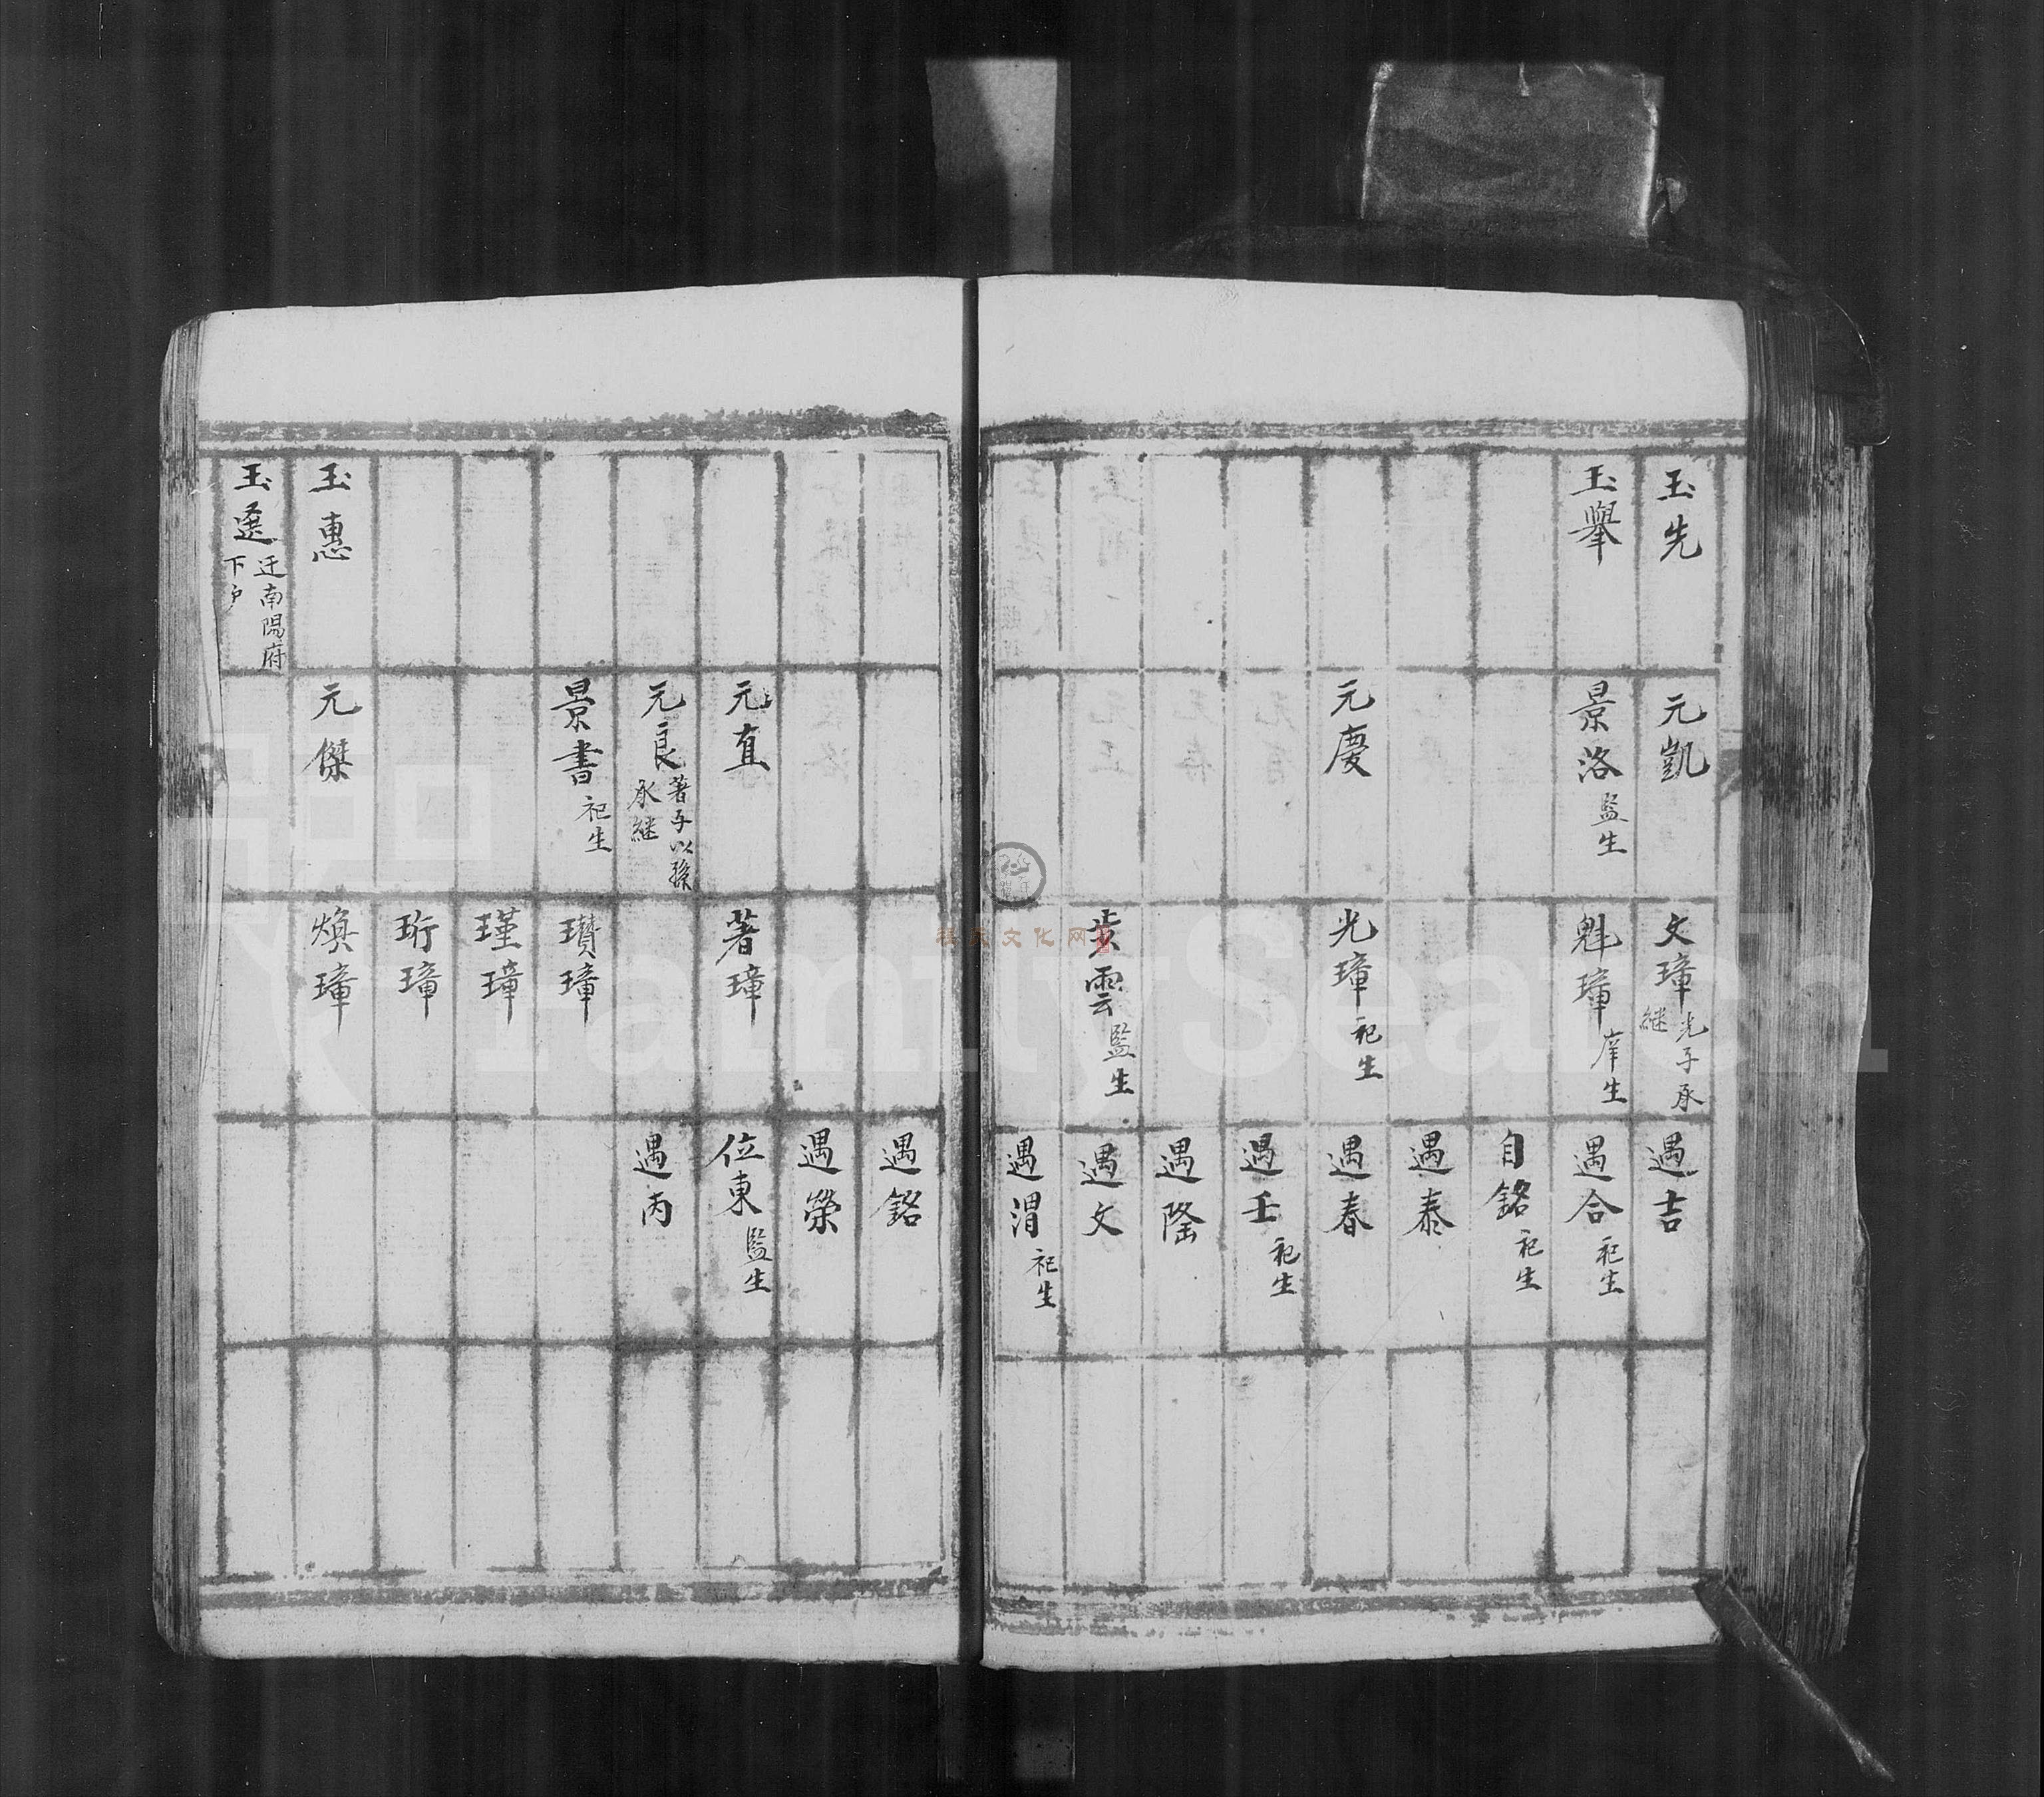 玉先
玉舉
元凱
景洛 監生
元慶
文璋 光子承
継
魁璋 庠生
光璋 祀生
步雲 監生
遇吉
遇合 祀生
自銘 祀生
遇泰
遇春
遇壬 祀生
遇隆
遇文
遇渭 祀生
玉惠
玉選 迁南陽府
下户
元直
元良 著子以孫
承継
景書 祀生
元傑
著璋
瓚璋
瑾璋
珩璋
煥璋
遇銘
遇榮
位東 監生
遇丙
FamilySearch